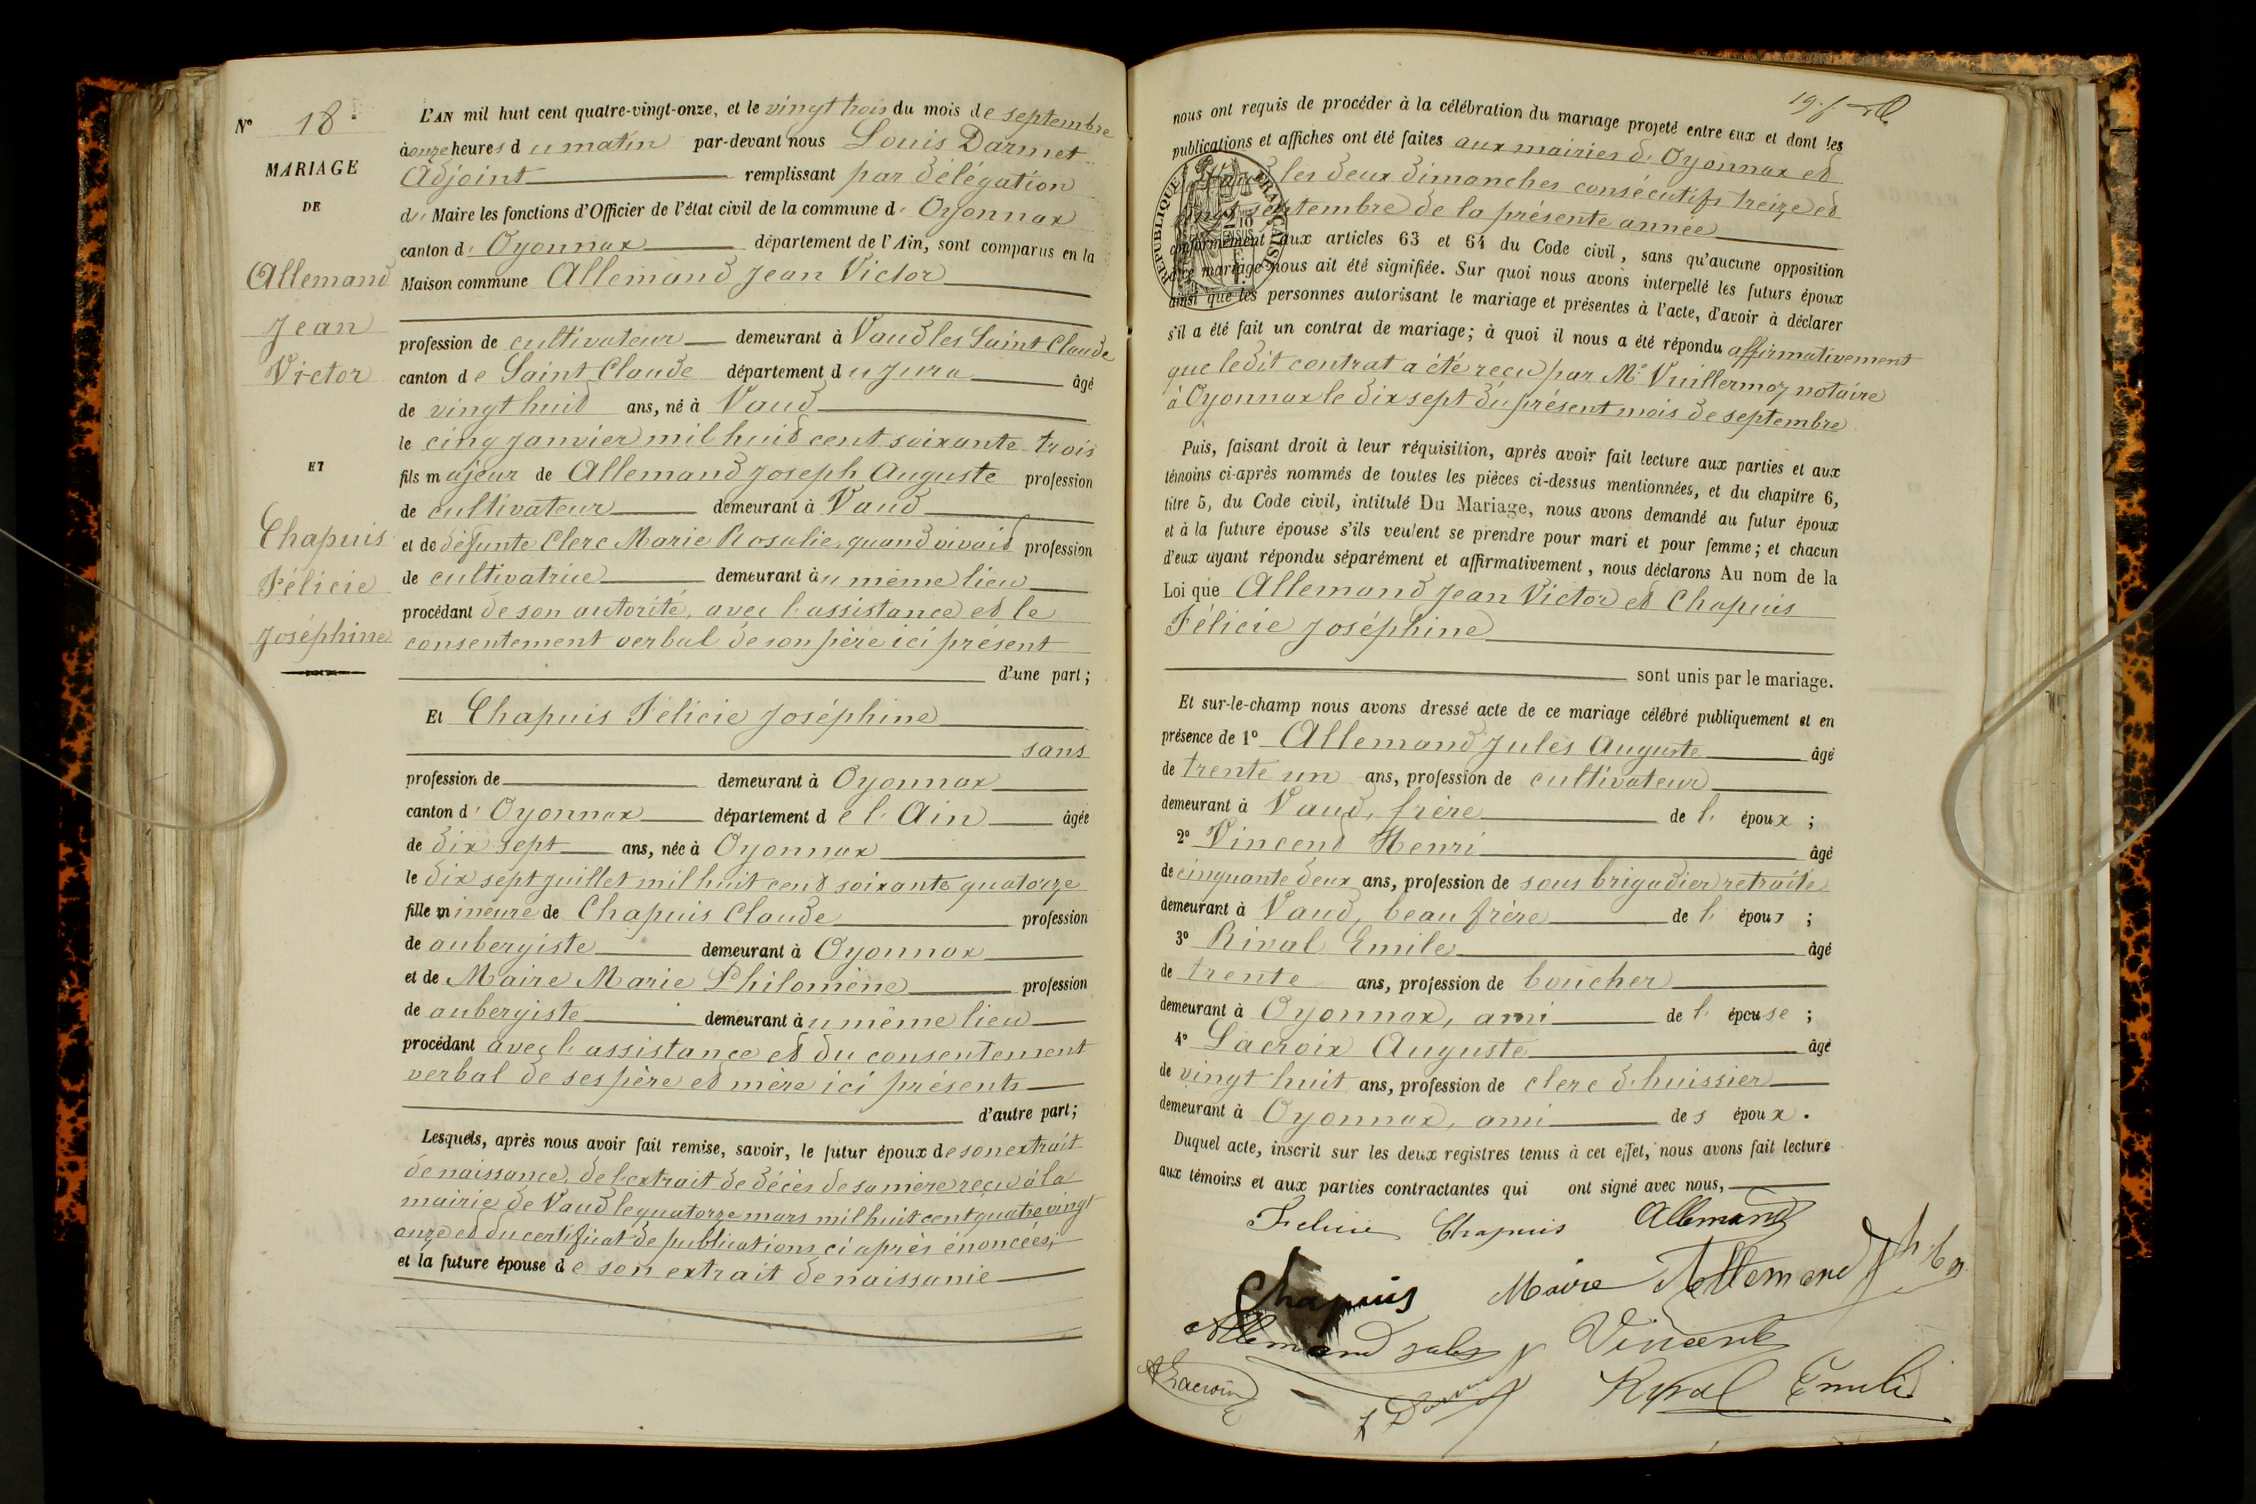 N° 18
MARIAGE
DE
Allemand
Jean
Victor
ET
Chapuis
Félicie
Joséphine
L'AN mil huit cent quatre-vingt-onze, et le vingt trois du mois de septembre
à onze heures du matin par-devant nous Louis Darmet
Adjoint remplissant par délégation
du Maire les fonctions d'Officier de l'état civil de la commune d' Oyonnax
canton d' Oyonnax département de l'Ain, sont comparus en la
Maison commune Allemand Jean Victor
profession de cultivateur demeurant à Vaud les Saint Claude
canton de Saint Claude département du Jura âgé
de vingt huit ans, né à Vaud
le cinq janvier mil huit cent soixante trois
fils majeur de Allemand Joseph Auguste profession
de cultivateur demeurant à Vaud
et de défunte Clerc Marie Rosalie, quand vivait profession
de cultivatrice demeurant au même lieu
procédant de son autorité, avec l'assistance et le
consentement verbal de son père ici présent
d'une part;
Et Chapuis Félicie Joséphine
sans
profession de demeurant à Oyonnax
canton d' Oyonnax département de l'Ain âgée
de dix sept ans, née à Oyonnax
le dix sept juillet mil huit cent soixante quatorze
fille mineure de Chapuis Claude profession
de aubergiste demeurant à Oyonnax
et de Maire Marie Philomène profession
de aubergiste demeurant au même lieu
procédant avec l'assistance et du consentement
verbal de ses père et mère ici présents
d'autre part;
Lesquels, après nous avoir fait remise, savoir, le futur époux de son extrait
de naissance, de l'extrait de décès de sa mère reçu à la
mairie de Vaud le quatorze mars mil huit cent quatre vingt
onze et du certificat de publications ci après énoncées,
et la future épouse de son extrait de naissance
nous ont requis de procéder à la célébration du mariage projeté entre eux et dont les
publications et affiches ont été faites aux mairies d'Oyonnax et
les deux dimanches consécutifs treize et
vingt septembre de la présente année
conformément aux articles 63 et 64 du Code civil, sans qu'aucune opposition
à ce mariage nous ait été signifiée. Sur quoi nous avons interpellé les futurs époux
ainsi que les personnes autorisant le mariage et présentes à l'acte, d'avoir à déclarer
s'il a été fait un contrat de mariage; à quoi il nous a été répondu affirmativement
que ledit contrat a été reçu par Me Vuillermoz notaire
à Oyonnax le dix sept du présent mois de septembre
Puis, faisant droit à leur réquisition, après avoir fait lecture aux parties et aux
témoins ci-après nommés de toutes les pièces ci-dessus mentionnées, et du chapitre 6,
titre 5, du Code civil, intitulé Du Mariage, nous avons demandé au futur époux
et à la future épouse s'ils veulent se prendre pour mari et pour femme; et chacun
d'eux ayant répondu séparément et affirmativement, nous déclarons Au nom de la
Loi que Allemand Jean Victor et Chapuis
Félicie Joséphine
sont unis par le mariage.
Et sur-le-champ nous avons dressé acte de ce mariage célébré publiquement et en
présence de 1° Allemand Jules Auguste âgé
de trente un ans, profession de cultivateur
demeurant à Vaud, frère de l' époux ;
2° Vincent Henri âgé
de cinquante deux ans, profession de sous brigadier retraité
demeurant à Vaud, beau frère de l' époux ;
3° Rival Emile âgé
de trente ans, profession de boucher
demeurant à Oyonnax, ami de l' épouse ;
4° Lacroix Auguste âgé
de vingt huit ans, profession de clerc d'huissier
demeurant à Oyonnax, ami des époux.
Duquel acte, inscrit sur les deux registres tenus à cet effet, nous avons fait lecture
aux témoins et aux parties contractantes qui ont signé avec nous,
Felicie Chapuis Allemand
Chapuis Maire Allemand
Allemand Jules Vincent
A Lacroix Rival Emile
RÉPUBLIQUE FRANÇAISE